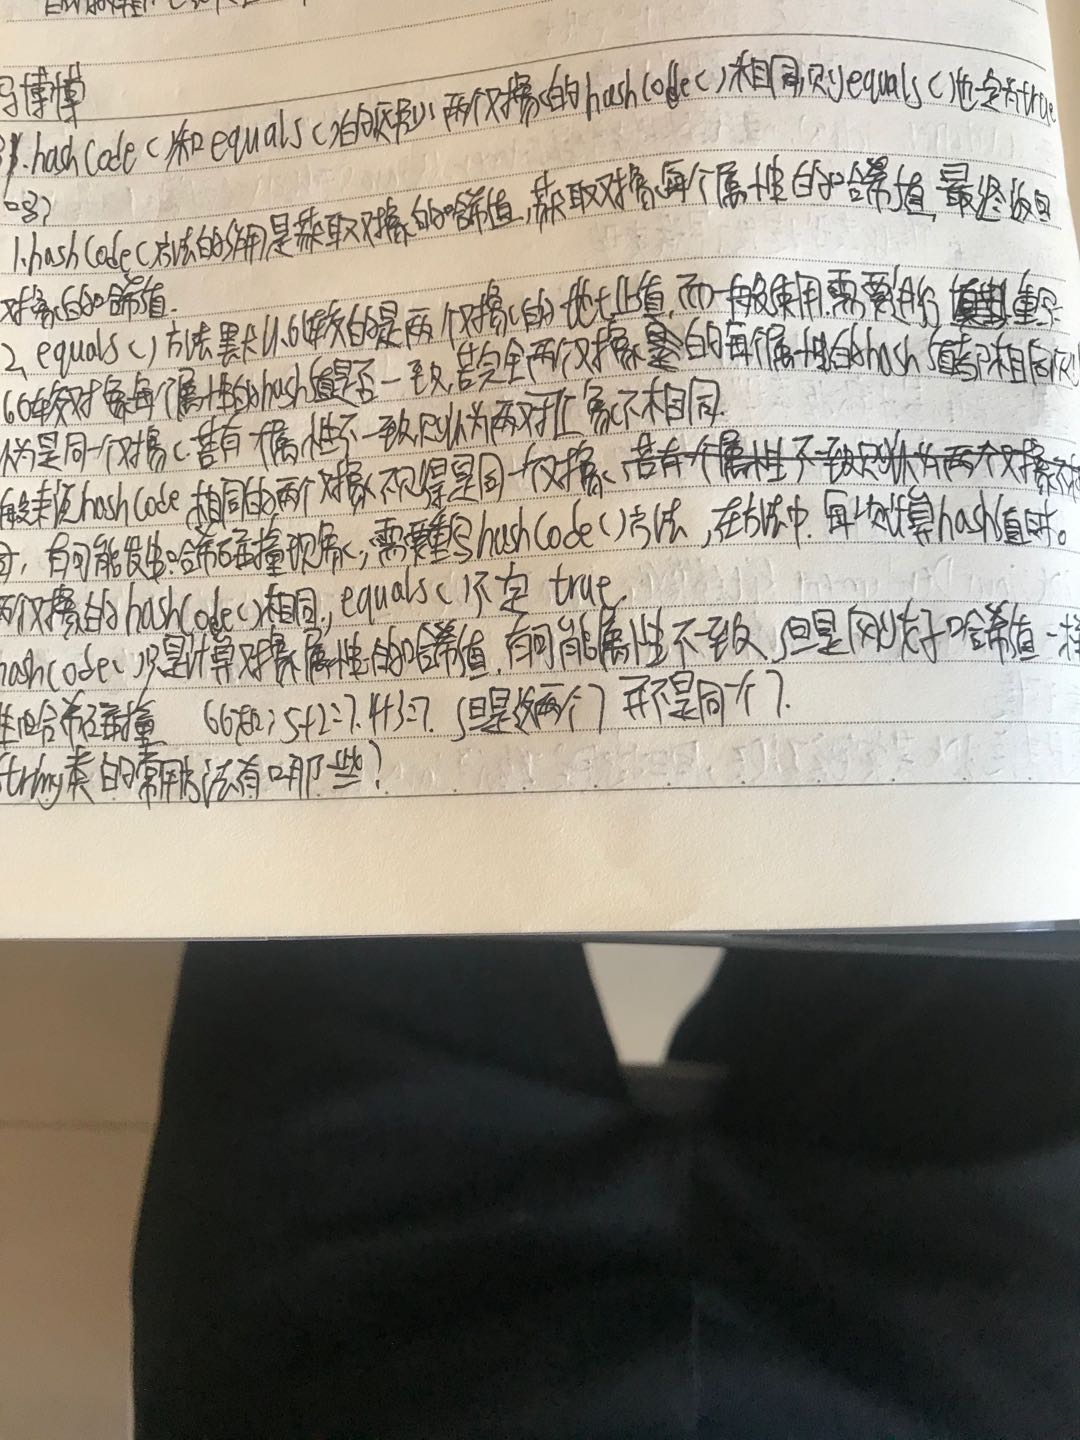 马博博
.hashCode()和equals()的区别，两个对象的hashCode()相同，则equals()也一定为true
吗？
1.hashCode()方法的作用是获取对象的哈希值，获取对象每个属性的哈希值，最终返回
对象的哈希值.
2.equals()方法默认比较的是两个对象的地址值，而一般使用需要进行重写
比较对象每个属性的hash值是否一致，若完全两个对象的每个属性的hash值都相同则
认为是同一个对象.若有一个属性不一致则认为两对象不相同.
般来说hashCode相同的两个对象不见得是同一个对象，若有一个属性不一致则认为两个对象不相
同，有可能发生哈希碰撞现象，需要重写hashCode()方法，在方法中.每次计算hash值时。
两个对象的hashCode()相同，equals()不一定true.
hashCode()只是计算对象属性的哈希值，有可能属性不一致，但是刚好哈希值一样
哈希碰撞 比如:5+2=7.4+3=7.但是这两个7并不是同一个7.
String类的常用方法有哪些？